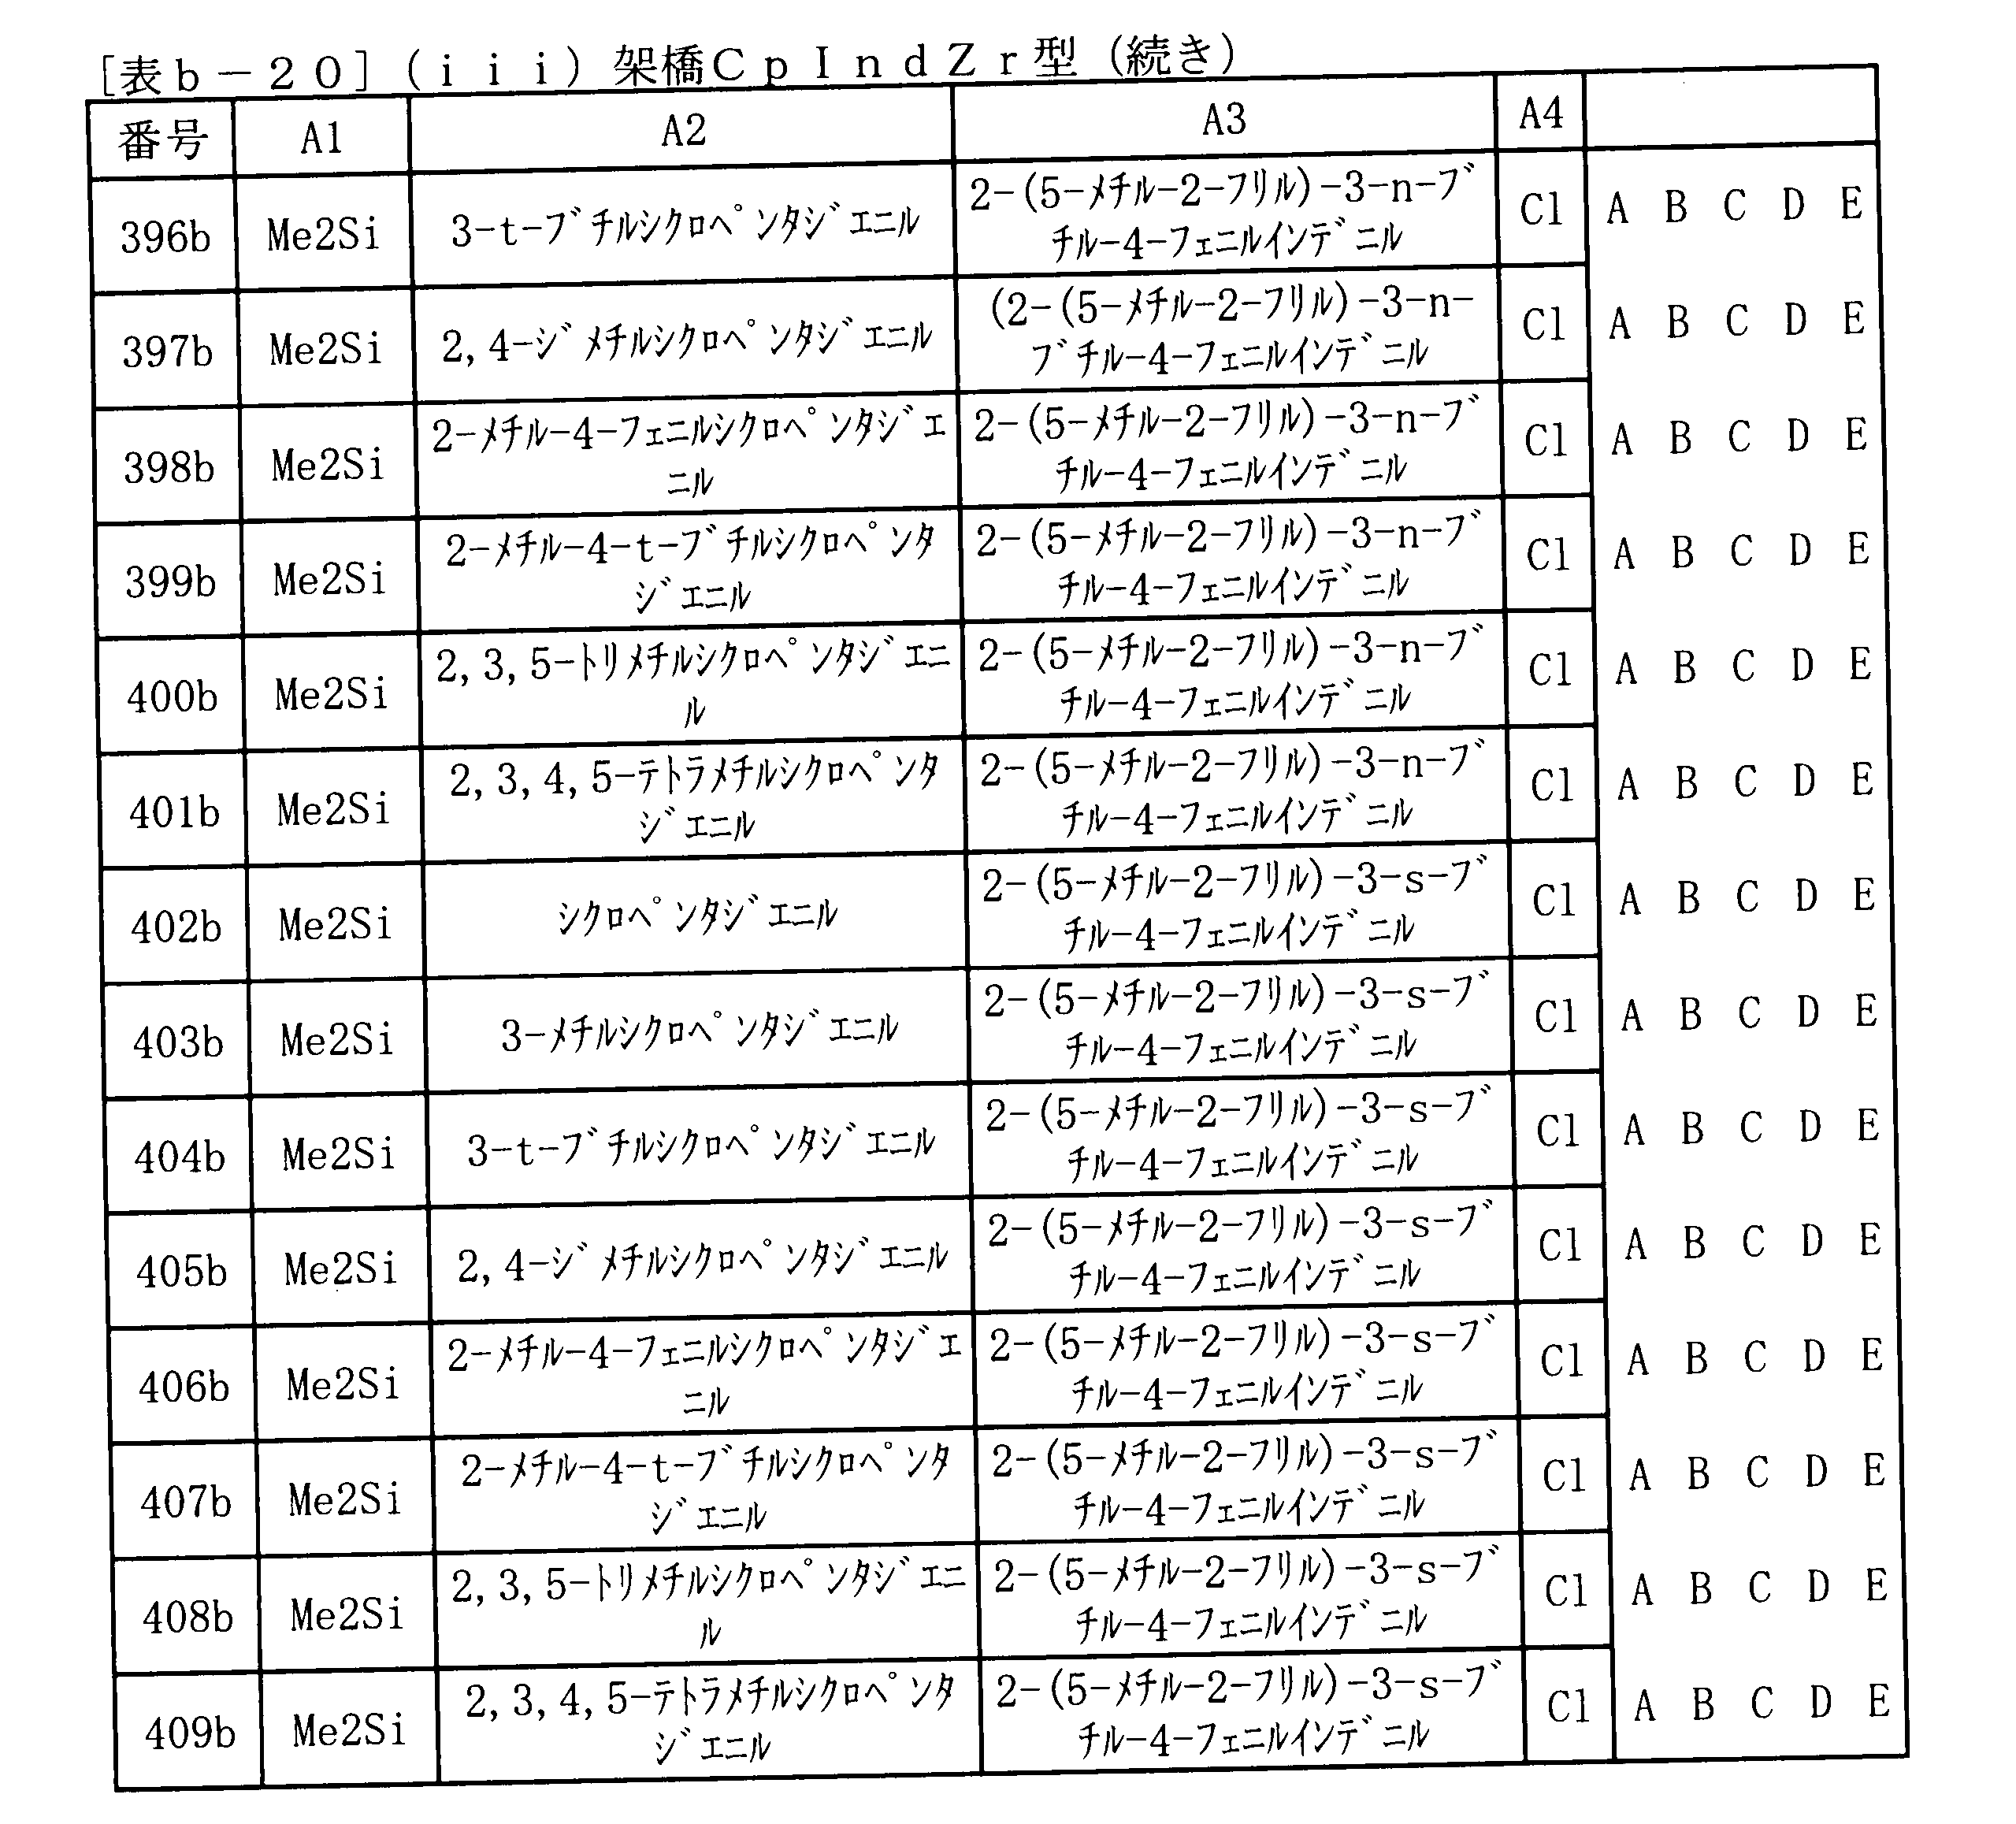 [表b−20](iii) 架橋CpIndZr型 (続き)
番号 A1 A2 A3 A4
396b Me2Si 3-t-ﾌﾞﾁﾙｼｸﾛﾍﾟﾝﾀｼﾞｴﾆﾙ 2-(5-ﾒﾁﾙ-2-ﾌﾘﾙ)-3-n-ﾌﾞ Cl A B C D E
ﾁﾙ-4-ﾌｪﾆﾙｲﾝﾃﾞﾆﾙ
397b Me2Si 2,4-ｼﾞﾒﾁﾙｼｸﾛﾍﾟﾝﾀｼﾞｴﾆﾙ (2-(5-ﾒﾁﾙ-2-ﾌﾘﾙ)-3-n- Cl A B C D E
ﾌﾞﾁﾙ-4-ﾌｪﾆﾙｲﾝﾃﾞﾆﾙ
398b Me2Si 2-ﾒﾁﾙ-4-ﾌｪﾆﾙｼｸﾛﾍﾟﾝﾀｼﾞｴ 2-(5-ﾒﾁﾙ-2-ﾌﾘﾙ)-3-n-ﾌﾞ Cl A B C D E
ﾆﾙ ﾁﾙ-4-ﾌｪﾆﾙｲﾝﾃﾞﾆﾙ
399b Me2Si 2-ﾒﾁﾙ-4-t-ﾌﾞﾁﾙｼｸﾛﾍﾟﾝﾀ 2-(5-ﾒﾁﾙ-2-ﾌﾘﾙ)-3-n-ﾌﾞ Cl A B C D E
ｼﾞｴﾆﾙ ﾁﾙ-4-ﾌｪﾆﾙｲﾝﾃﾞﾆﾙ
400b Me2Si 2,3,5-ﾄﾘﾒﾁﾙｼｸﾛﾍﾟﾝﾀｼﾞｴﾆ 2-(5-ﾒﾁﾙ-2-ﾌﾘﾙ)-3-n-ﾌﾞ Cl A B C D E
ﾙ ﾁﾙ-4-ﾌｪﾆﾙｲﾝﾃﾞﾆﾙ
401b Me2Si 2,3,4,5-ﾃﾄﾗﾒﾁﾙｼｸﾛﾍﾟﾝﾀ 2-(5-ﾒﾁﾙ-2-ﾌﾘﾙ)-3-n-ﾌﾞ Cl A B C D E
ｼﾞｴﾆﾙ ﾁﾙ-4-ﾌｪﾆﾙｲﾝﾃﾞﾆﾙ
402b Me2Si ｼｸﾛﾍﾟﾝﾀｼﾞｴﾆﾙ 2-(5-ﾒﾁﾙ-2-ﾌﾘﾙ)-3-s-ﾌﾞ Cl A B C D E
ﾁﾙ-4-ﾌｪﾆﾙｲﾝﾃﾞﾆﾙ
403b Me2Si 3-ﾒﾁﾙｼｸﾛﾍﾟﾝﾀｼﾞｴﾆﾙ 2-(5-ﾒﾁﾙ-2-ﾌﾘﾙ)-3-s-ﾌﾞ Cl A B C D E
ﾁﾙ-4-ﾌｪﾆﾙｲﾝﾃﾞﾆﾙ
404b Me2Si 3-t-ﾌﾞﾁﾙｼｸﾛﾍﾟﾝﾀｼﾞｴﾆﾙ 2-(5-ﾒﾁﾙ-2-ﾌﾘﾙ)-3-s-ﾌﾞ Cl A B C D E
ﾁﾙ-4-ﾌｪﾆﾙｲﾝﾃﾞﾆﾙ
405b Me2Si 2,4-ｼﾞﾒﾁﾙｼｸﾛﾍﾟﾝﾀｼﾞｴﾆﾙ 2-(5-ﾒﾁﾙ-2-ﾌﾘﾙ)-3-s-ﾌﾞ Cl A B C D E
ﾁﾙ-4-ﾌｪﾆﾙｲﾝﾃﾞﾆﾙ
406b Me2Si 2-ﾒﾁﾙ-4-ﾌｪﾆﾙｼｸﾛﾍﾟﾝﾀｼﾞｴ 2-(5-ﾒﾁﾙ-2-ﾌﾘﾙ)-3-s-ﾌﾞ Cl A B C D E
ﾆﾙ ﾁﾙ-4-ﾌｪﾆﾙｲﾝﾃﾞﾆﾙ
407b Me2Si 2-ﾒﾁﾙ-4-t-ﾌﾞﾁﾙｼｸﾛﾍﾟﾝﾀ 2-(5-ﾒﾁﾙ-2-ﾌﾘﾙ)-3-s-ﾌﾞ Cl A B C D E
ｼﾞｴﾆﾙ ﾁﾙ-4-ﾌｪﾆﾙｲﾝﾃﾞﾆﾙ
408b Me2Si 2,3,5-ﾄﾘﾒﾁﾙｼｸﾛﾍﾟﾝﾀｼﾞｴﾆ 2-(5-ﾒﾁﾙ-2-ﾌﾘﾙ)-3-s-ﾌﾞ Cl A B C D E
ﾙ ﾁﾙ-4-ﾌｪﾆﾙｲﾝﾃﾞﾆﾙ
409b Me2Si 2,3,4,5-ﾃﾄﾗﾒﾁﾙｼｸﾛﾍﾟﾝﾀ 2-(5-ﾒﾁﾙ-2-ﾌﾘﾙ)-3-s-ﾌﾞ Cl A B C D E
ｼﾞｴﾆﾙ ﾁﾙ-4-ﾌｪﾆﾙｲﾝﾃﾞﾆﾙ